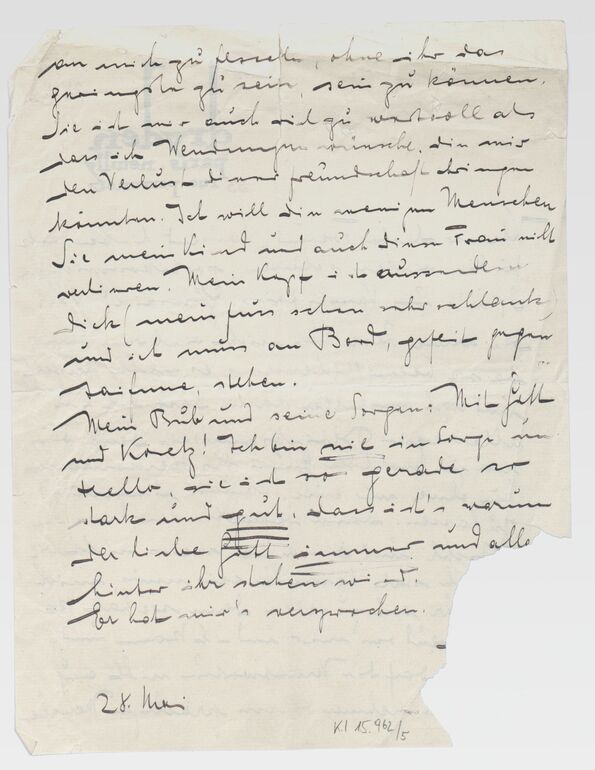 an mich zu fesseln, ohne ihr das
geringste zu sein, sein zu können.
Sie ist mir auch viel zu wertvoll als
dass ich Wendungen wünsche, die mir
den Verlust dieser freundschaft bringen
könnten. Ich will die wenigen Menschen
Sie mein Kind und auch diese Frau nicht
verlieren. Mein Kopf ist ausserdem
dick (mein fuss schon sehr schlank)
und ich muss an Bord, gefeit gegen
taifune, stehen.
Mein Bub und seine Sorgen: Mit
und Kraetz! Ich bin nie in Sorge um
Hello, sie ist so gerade so
stark und gut, dass ist's warum
der liebe Gott immer und alle
hinter ihr stehen wird.
Er hat mir's versprochen.
28. Mai
K.I 15.962/5